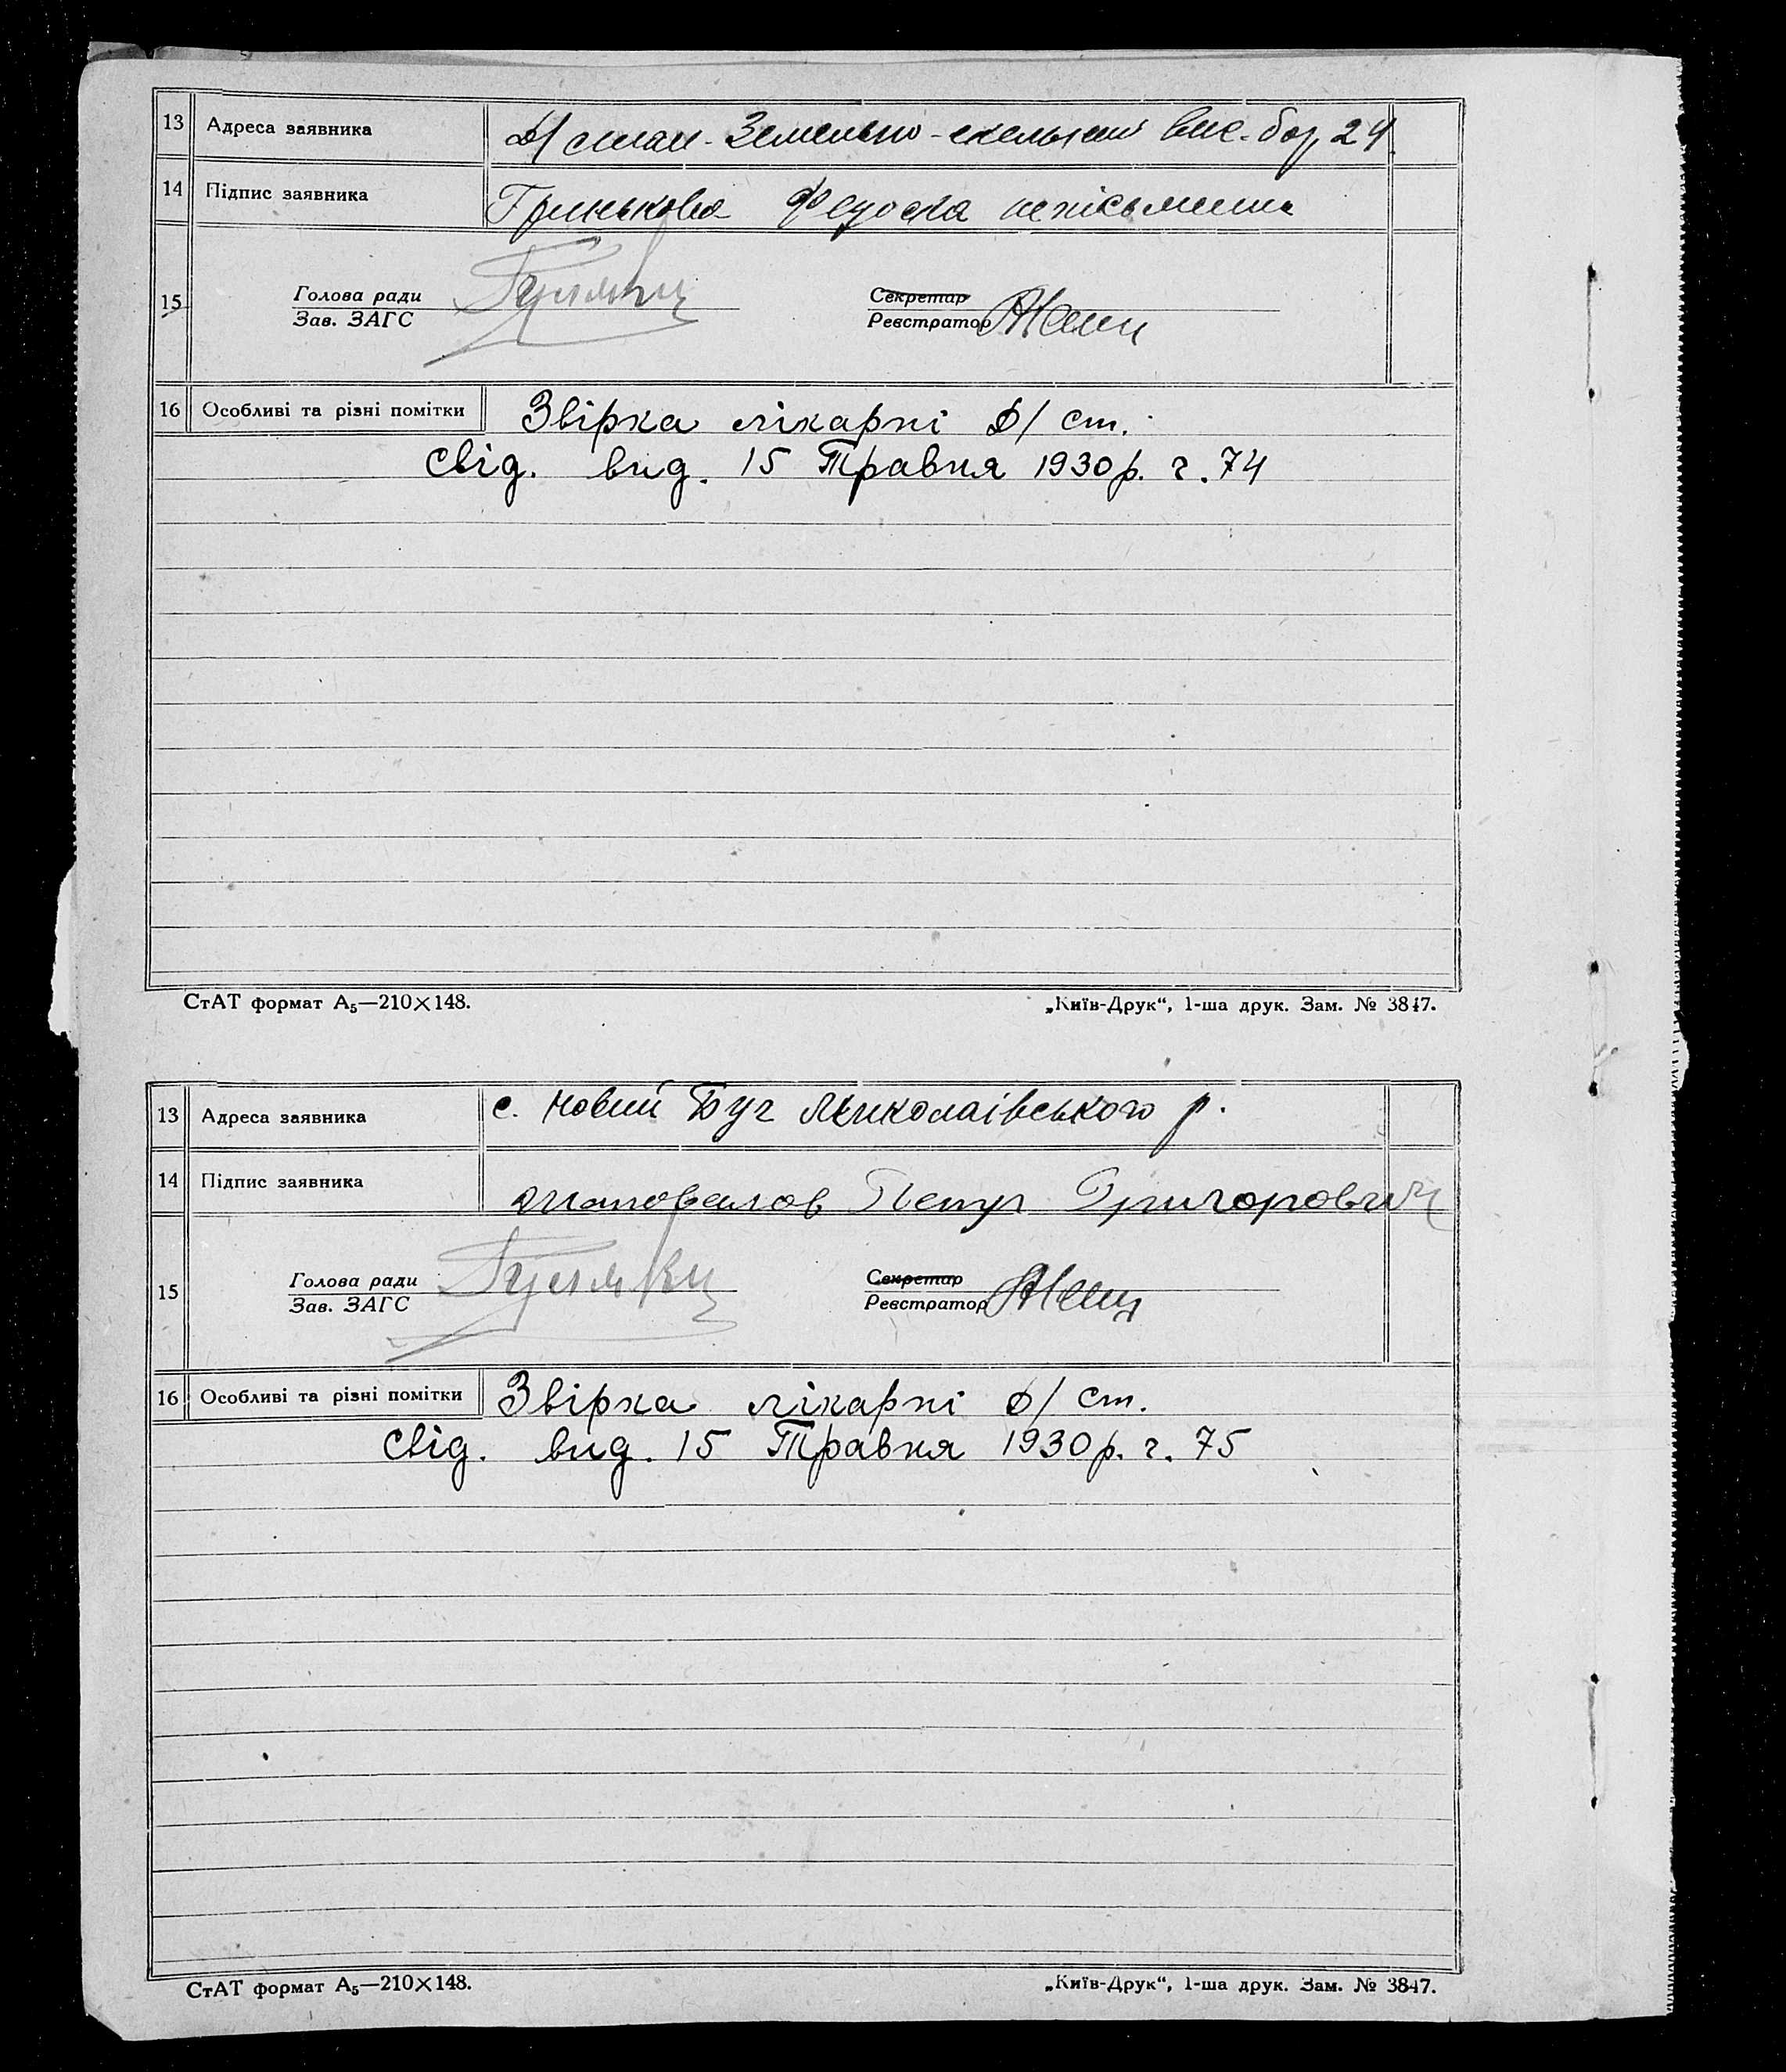 13 Адреса заявника
14 Підпис заявника Гринькова Федоска неписьменна
15 Голова ради Секретар
Зав. ЗАГС Реєстратор
16 Особливі та різні помітки Звірка лікарні Ф/ ст.
Свід. вид. 15 Травня 1930 р. ч. 74
СтАТ формат А5—210×148. „Київ-Друк“, 1-ша друк. Зам. № 3847.
13 Адреса заявника с. Новий Буг Миколаївського р.
14 Підпис заявника Шаповалов Петр Григорович
15 Голова ради Секретар
Зав. ЗАГС Реєстратор
16 Особливі та різні помітки Звірка лікарні Ф/ ст.
Свід. вид. 15 Травня 1930 р. ч. 75
СтАТ формат А5—210×148. „Київ-Друк“, 1-ша друк. Зам. № 3847.